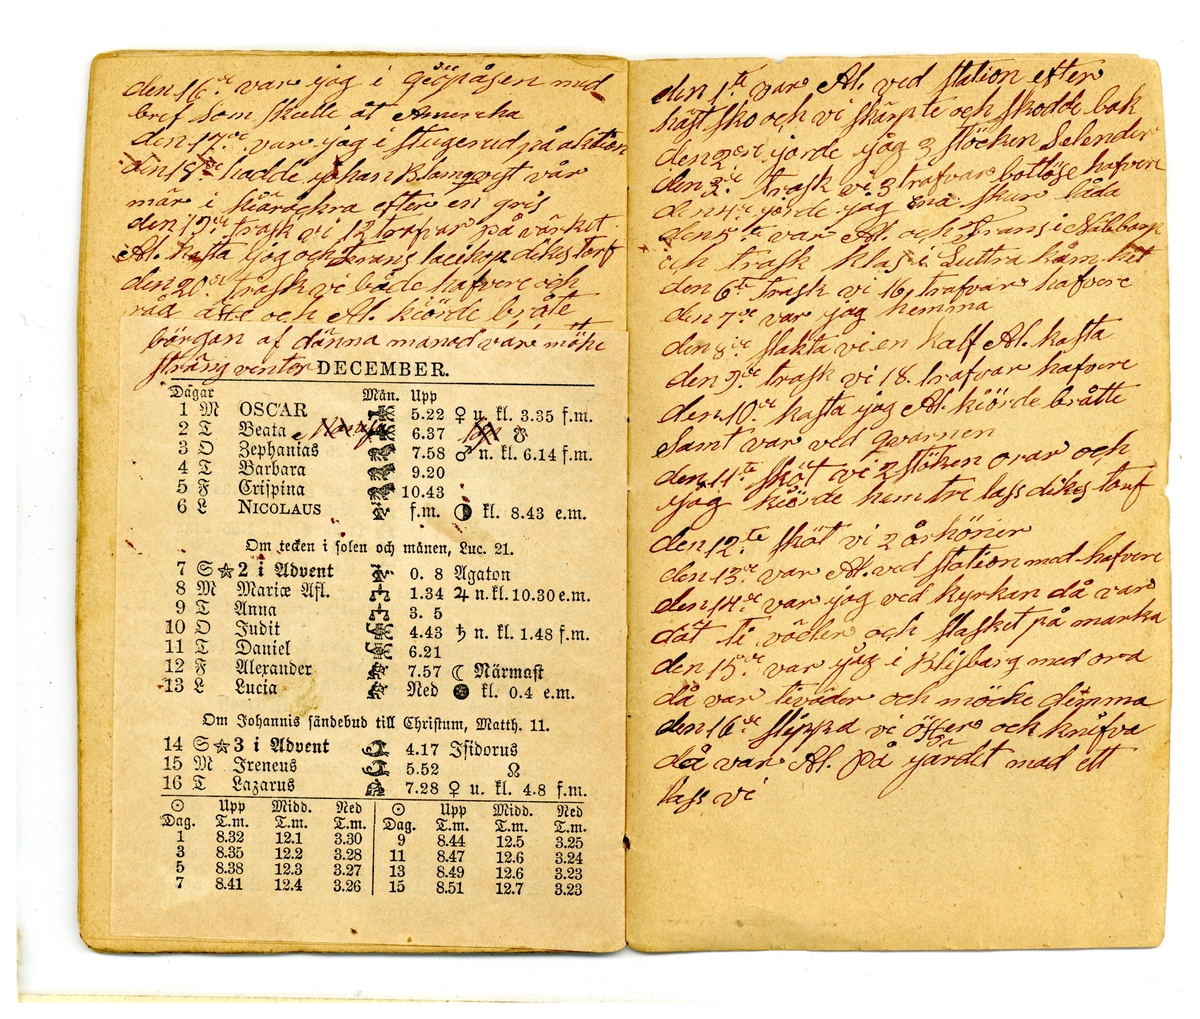 den 16de var jag i Giöpåsen med
bref som skulle åt Amereka
den 17de var jag i Stugerud på aktion
den 18de hadde Johan Blomqvist vår
mär i Skåråckra efter en gris
den 19de trask vi 12 trafvar på värket
Al. kasta jag och Frans dikes torf
den 20de trask vi både hafvere och
råå och Al. kiörde bråte
början af dänna manad var möke
sträng venter
DECEMBER.
Dagar Mån. Upp
1 M OSCAR 5.22 ♀ u. kl. 3.35 f.m.
2 T Beata 6.37 ☊
3 O Zephanias 7.58 ♂ n. kl. 6.14 f.m.
4 T Barbara 9.20
5 F Crispina 10.43
6 L NICOLAUS f.m. ◑ kl. 8.43 e.m.
Om tecken i solen och månen, Luc. 21.
7 S ☆ 2 i Advent 0. 8 Agaton
8 M Mariæ Afl. 1.34 ♃ n. kl. 10.30 e.m.
9 T Anna 3. 5
10 O Judit 4.43 ♄ n. kl. 1.48 f.m.
11 T Daniel 6.21
12 F Alexander 7.57 ☾ Närmast
13 L Lucia Ned ● kl. 0.4 e.m.
Om Johannis sändebud till Christum, Matth. 11.
14 S ☆ 3 i Advent 4.17 Isidorus
15 M Ireneus 5.52 ☊
16 T Lazarus 7.28 ♀ u. kl. 4.8 f.m.
☉ Upp Midd. Ned ☉ Upp Midd. Ned
Dag. T.m. T.m. T.m. Dag. T.m. T.m. T.m.
1 8.32 12.1 3.30 9 8.44 12.5 3.25
3 8.35 12.2 3.28 11 8.47 12.6 3.24
5 8.38 12.3 3.27 13 8.49 12.6 3.23
7 8.41 12.4 3.26 15 8.51 12.7 3.23
den 1te var Al. ved station efter
häst sko och vi skärpte och skodde bak
den 2dre jorde jag 3 stöcken Selender
den 3de trask vi 3 trafvar botlöse hafvere
den 4de jorde jag små skur låda
den 5te var Al. och Frans i Nålberg
och trask klas i Luttra
den 6te trask vi 16 trafvar hafvere
den 7de var jag hemma
den 8de slakta vi en kalf Al. kasta
den 9de trask vi 18 trafvar hafvere
den 10de kasta jag Al. kiörde bråtte
samt var ved qvarnen
den 11te sköt vi 2 stöken orar och
jag kiörde hem tre lass dikes torf
den 12te sköt vi 2 århönor
den 13de var Al. ved station med hafvere
den 14de var jag ved kyrkan då var
dät ti väder och slasket på marka
den 15de var jag i Blisbärg med ora
då var tiväder och möcke dimma
den 16de slippa vi öffser och knifva
då var Al. på järdet med ett
lass vi